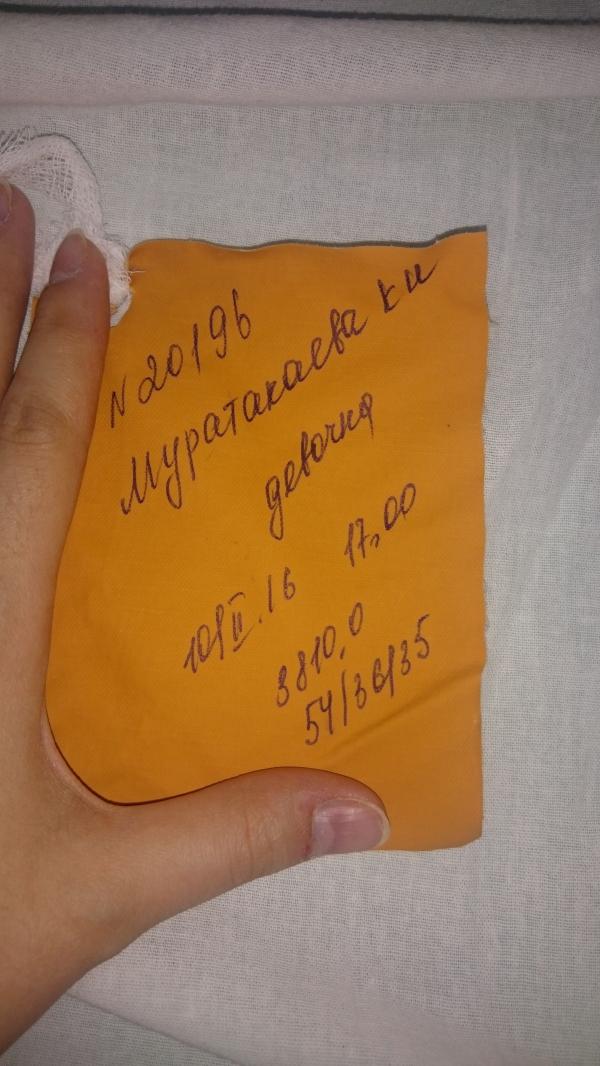 N 20196
Муратакаева К И
девочка
10/II.16 17.00
3810,0
54/36/35